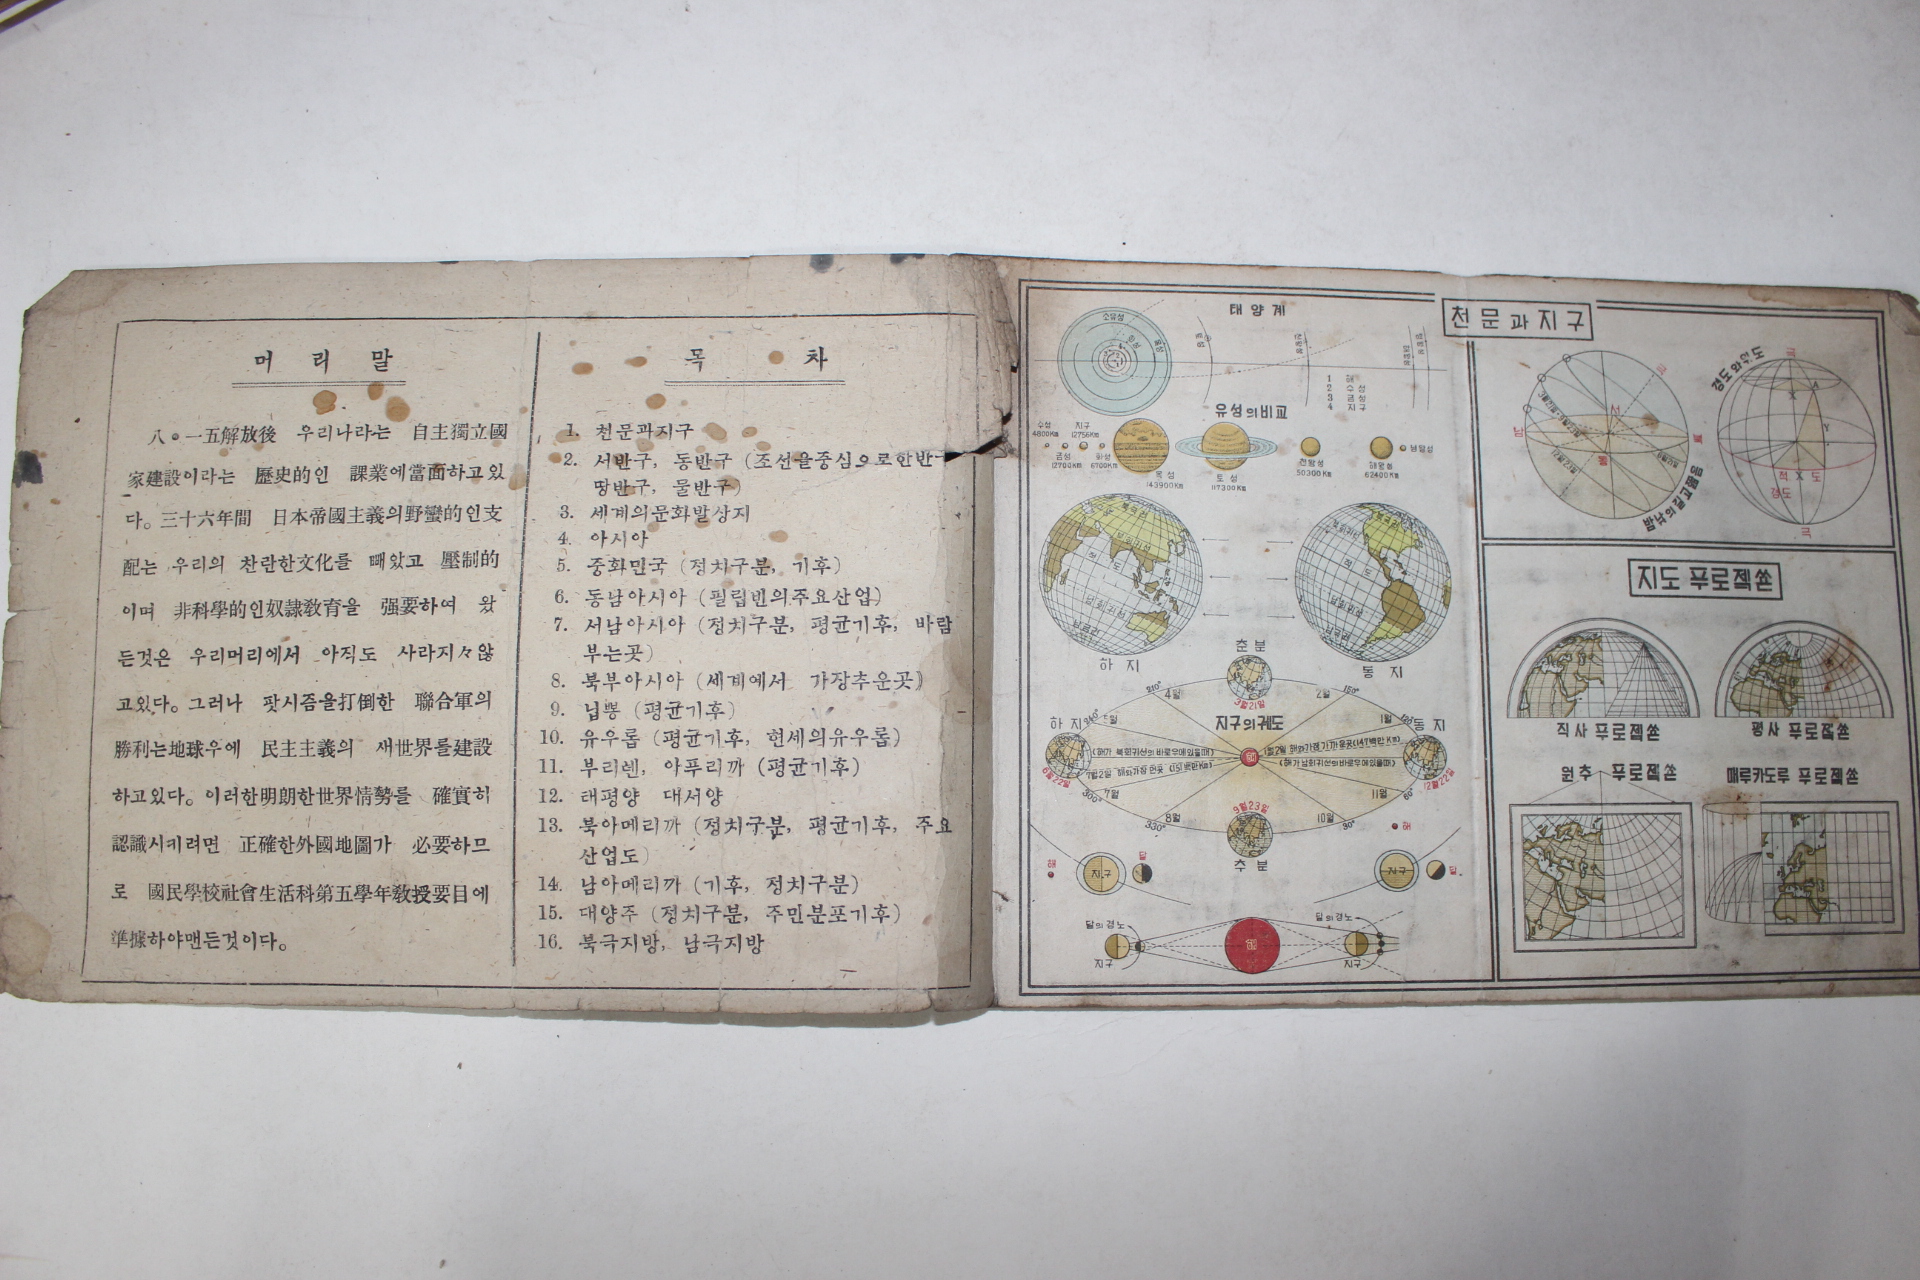 머리말
八。一五解放後 우리나라는 自主獨立國
家建設이라는 歷史的인 課業에當面하고있
다。三十六年間 日本帝國主義의野蠻的인支
配는 우리의 찬란한文化를 빼았고 壓制的
이며 非科學的인奴隷敎育을 强要하여 왔
든것은 우리머리에서 아직도 사라지々않
고있다。그러나 팟시즘을打倒한 聯合軍의
勝利는地球우에 民主主義의 새世界를建設
하고있다。이러한明朗한世界情勢를 確實히
認識시키려면 正確한外國地圖가 必要하므
로 國民學校社會生活科第五學年敎授要目에
準據하야맨든것이다。
목차
1. 천문과지구
2. 서반구, 동반구 (조선을중심으로한반구
땅반구, 물반구)
3. 세계의문화발상지
4. 아시아
5. 중화민국 (정치구분, 기후)
6. 동남아시아 (필립빈의주요산업)
7. 서남아시아 (정치구분, 평균기후, 바람
부는곳)
8. 북부아시아 (세계에서 가장추운곳)
9. 닙뽕 (평균기후)
10. 유우롭 (평균기후, 현세의유우롭)
11. 부리텐, 아푸리까 (평균기후)
12. 태평양 대서양
13. 북아메리까 (정치구분, 평균기후, 주요
산업도)
14. 남아메리까 (기후, 정치구분)
15. 대양주 (정치구분, 주민분포기후)
16. 북극지방, 남극지방
천문과지구
태양계
소유성
1 해
2 수성
3 금성
4 지구
유성의비교
수성
4800Km
지구
12756Km
금성
12700Km
화성
6700Km
목성
143900Km
토성
117300Km
천왕성
50300Km
해왕성
62400Km
명왕성
하지
동지
춘분
3월21일
210°
4월
2월
150°
하지
5월
지구의궤도
1월
동지
(해가 북회귀선의바로우에있을때)
7월2일 해와가장먼곳 (151백만Km)
1월2일 해와가장가까운곳(147백만Km)
(해가남회귀선의바로우에있을때)
6월22일
12월22일
300°
7월
11월
60°
8월
9월23일
10월
330°
30°
추분
해
지구
달
해
지구
달
달의경노
지구
해
달의경노
지구
극
서
남
북
동
밤낮의길고짧음
경도와위도
극
적도
경도
극
지도 푸로젝쏜
직사 푸로젝쏜
평사 푸로젝쏜
원추 푸로젝쏜
매루카도루 푸로젝쏜